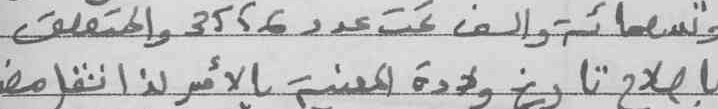 وتسعمائة والف تحت عدد 3556 والمتعلق
باصلاح تاريخ ولادة المعنية بالأمر لذا